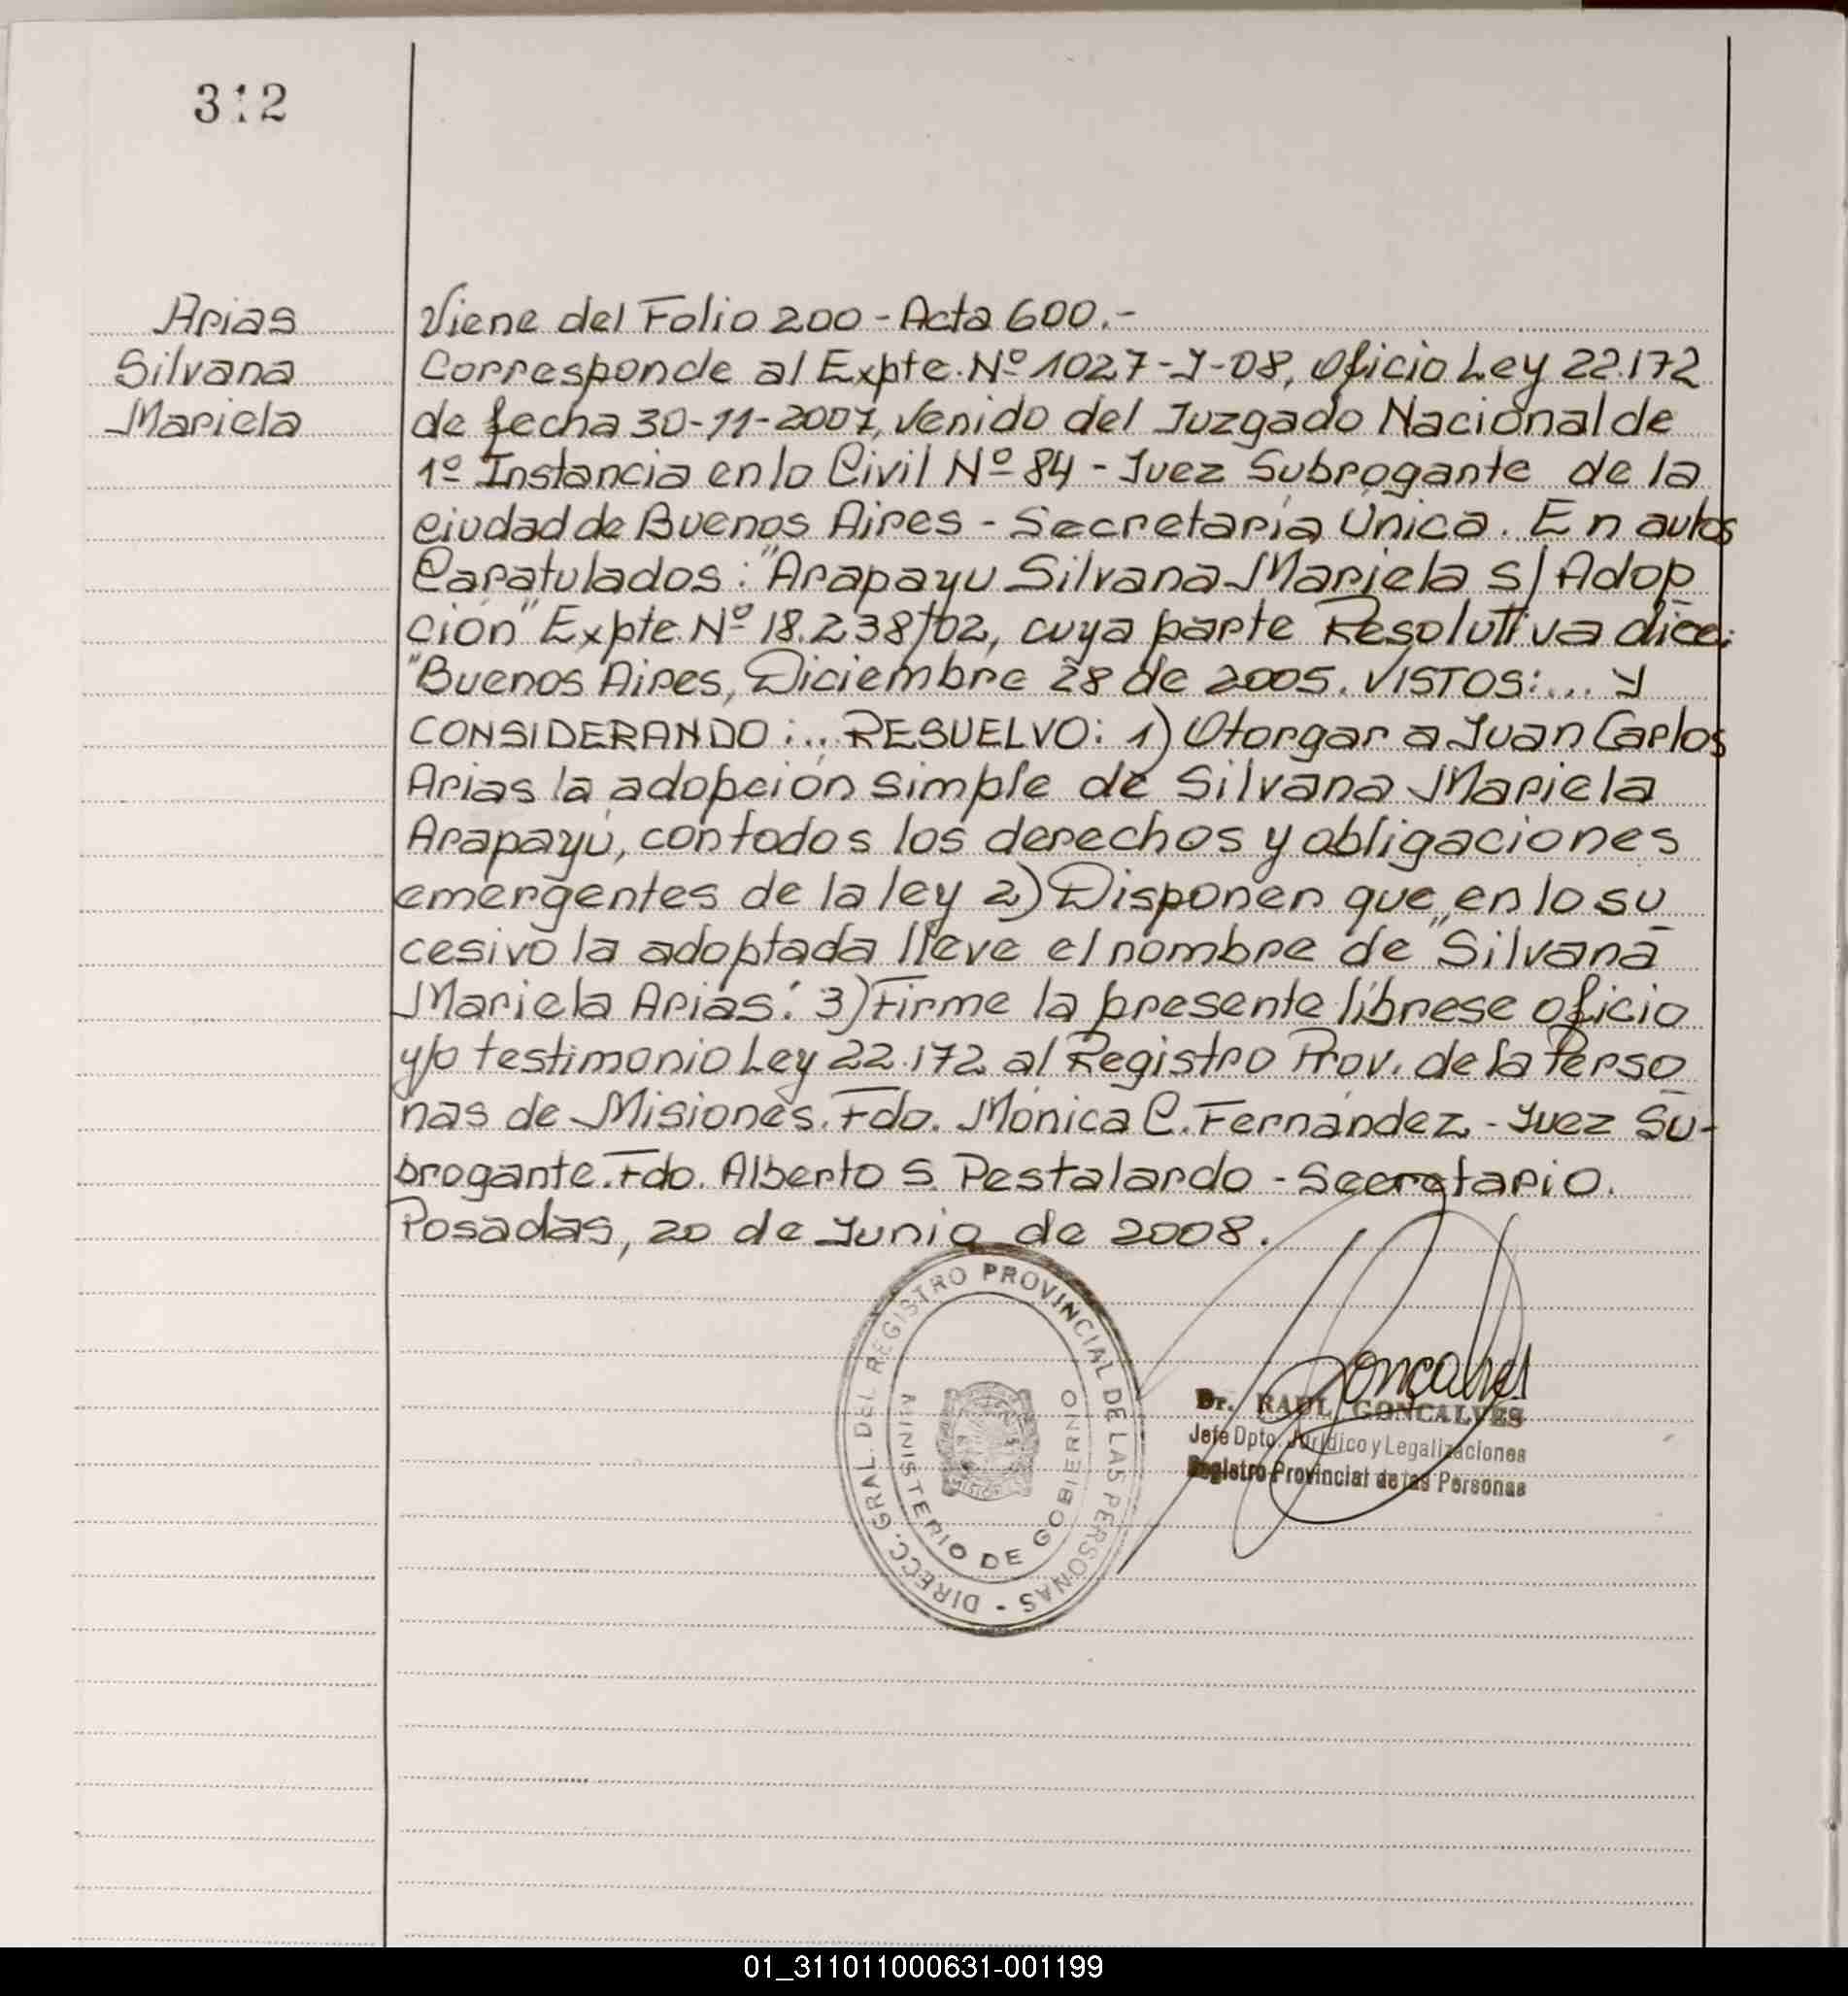 312
Arias
Silvana
Mariela
Viene del Folio 200 - Acta 600.-
Corresponde al Expte. Nº 1027-J-08, Oficio Ley 22.172
de fecha 30-11-2007, venido del Juzgado Nacional de
1º Instancia en lo Civil Nº 84 - Juez Subrogante de la
ciudad de Buenos Aires - Secretaría Única. En autos
Caratulados: "Arapayu Silvana Mariela s/ Adop
ción" Expte. Nº 18.238/02, cuya parte Resolutiva dice:
"Buenos Aires, Diciembre 28 de 2005. VISTOS:... y
CONSIDERANDO:... RESUELVO: 1) Otorgar a Juan Carlos
Arias la adopción simple de Silvana Mariela
Arapayú, con todos los derechos y obligaciones
emergentes de la ley 2) Disponer que en lo su
cesivo la adoptada lleve el nombre de "Silvana
Mariela Arias". 3) Firme la presente líbrese oficio
y/o testimonio Ley 22.172 al Registro Prov. de la Perso
nas de Misiones. Fdo. Mónica C. Fernández - Juez Su-
brogante. Fdo. Alberto S. Pestalardo - Secretario.
Posadas, 20 de Junio de 2008.
DIRECC. GRAL. DEL REGISTRO PROVINCIAL DE LAS PERSONAS -
MINISTERIO DE GOBIERNO
MISIONES
Goncalves
Dr. RAUL GONCALVES
Jefe Dpto. Jurídico y Legalizaciones
Registro Provincial de las Personas
01_311011000631-001199